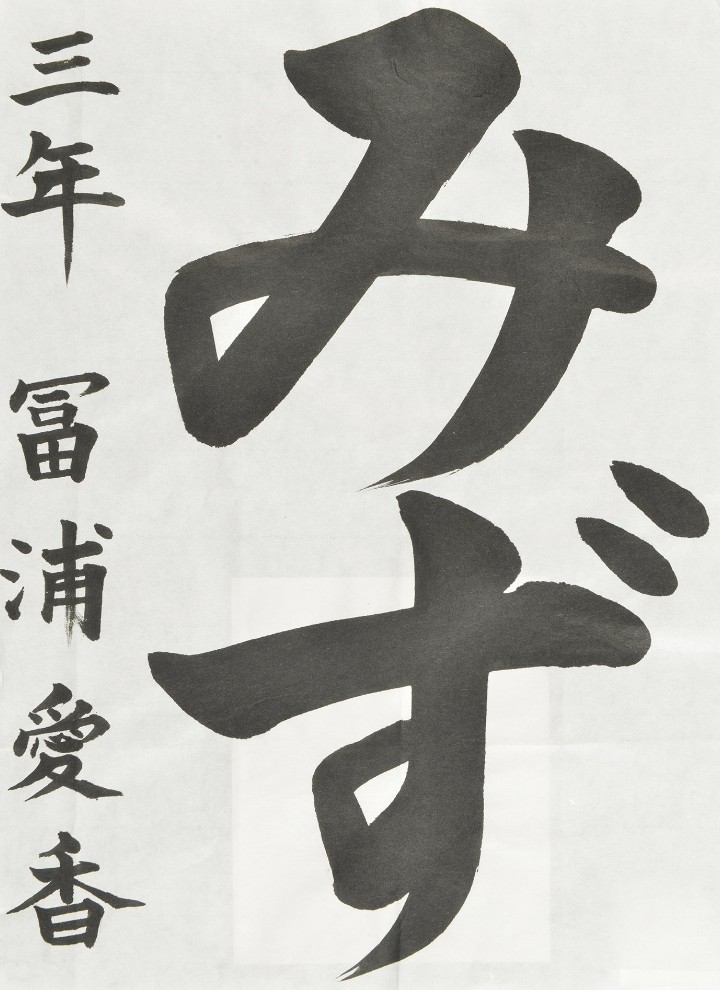 みず
三年 冨浦愛香